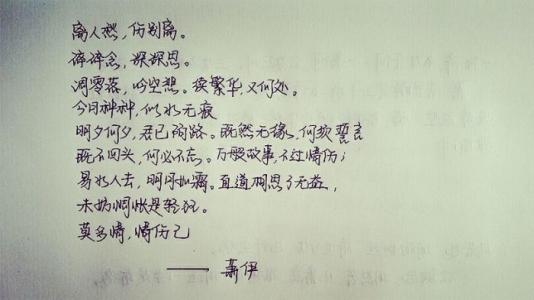 离人愁，伤别离。
碎碎念，深深思。
凋零落，吟空想。续繁华，又何处。
今日种种，似水无痕
明夕何夕，君已陌路。既然无缘，何须誓言
既不回头，何必不忘。万般故事，不过情伤；
易水人去，明月如霜。直道相思了无益，
未妨惆怅是轻狂。
莫多情，情伤己
—— 萧伊